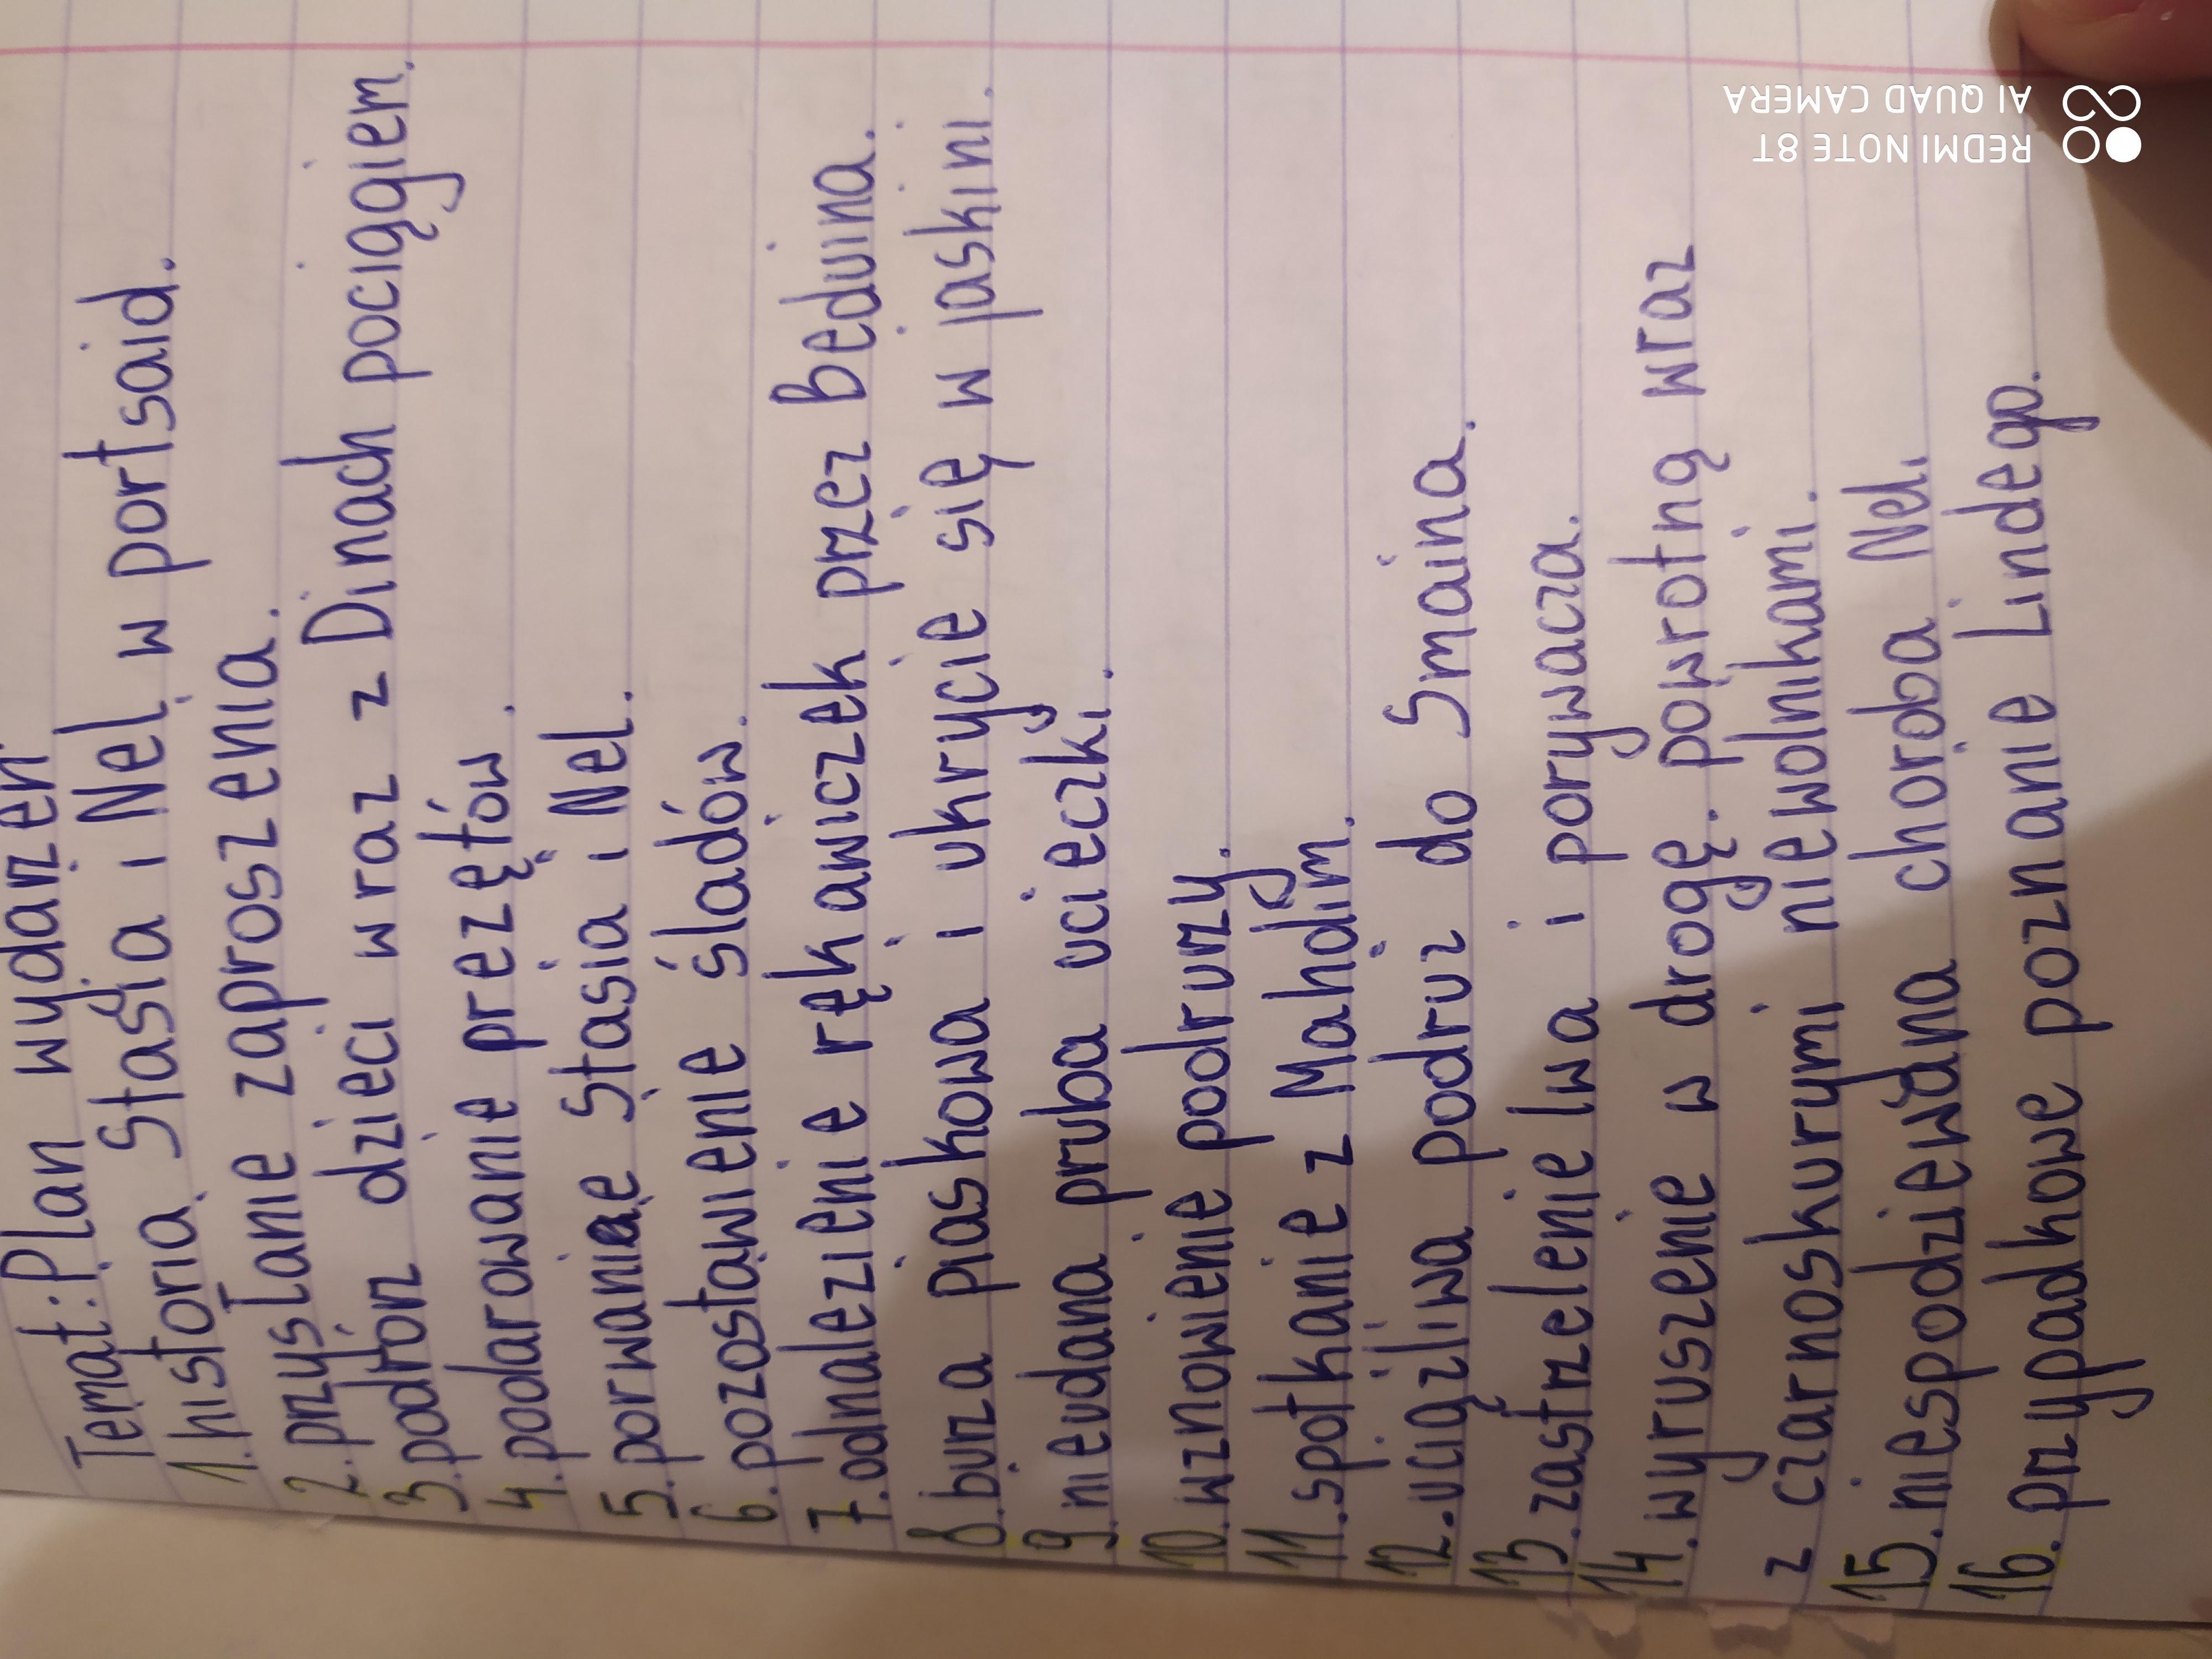 Temat: Plan wydarzeń
1. historia Stasia i Nel w portsaid.
2. przysłanie zaproszenia.
3. podróż dzieci wraz z Dinach pociągiem.
4. podarowanie prezętów.
5. porwanie Stasia i Nel.
6. pozostawienie śladów.
7. odnalezienie rękawiczek przez Beduina.
8. burza piaskowa i ukrycie się w jaskini.
9. nieudana pruba ucieczki.
10. wznowienie podruży.
11. spotkanie z Mahdim.
12. uciążliwa podruż do Smaina.
13. zastrzelenie lwa i porywacza.
14. wyruszenie w drogę. powrotną wraz
z czarnoskurymi niewolnikami.
15. niespodziewana choroba Nel.
16. przypadkowe poznanie Lindego.
REDMI NOTE 8T
AI QUAD CAMERA